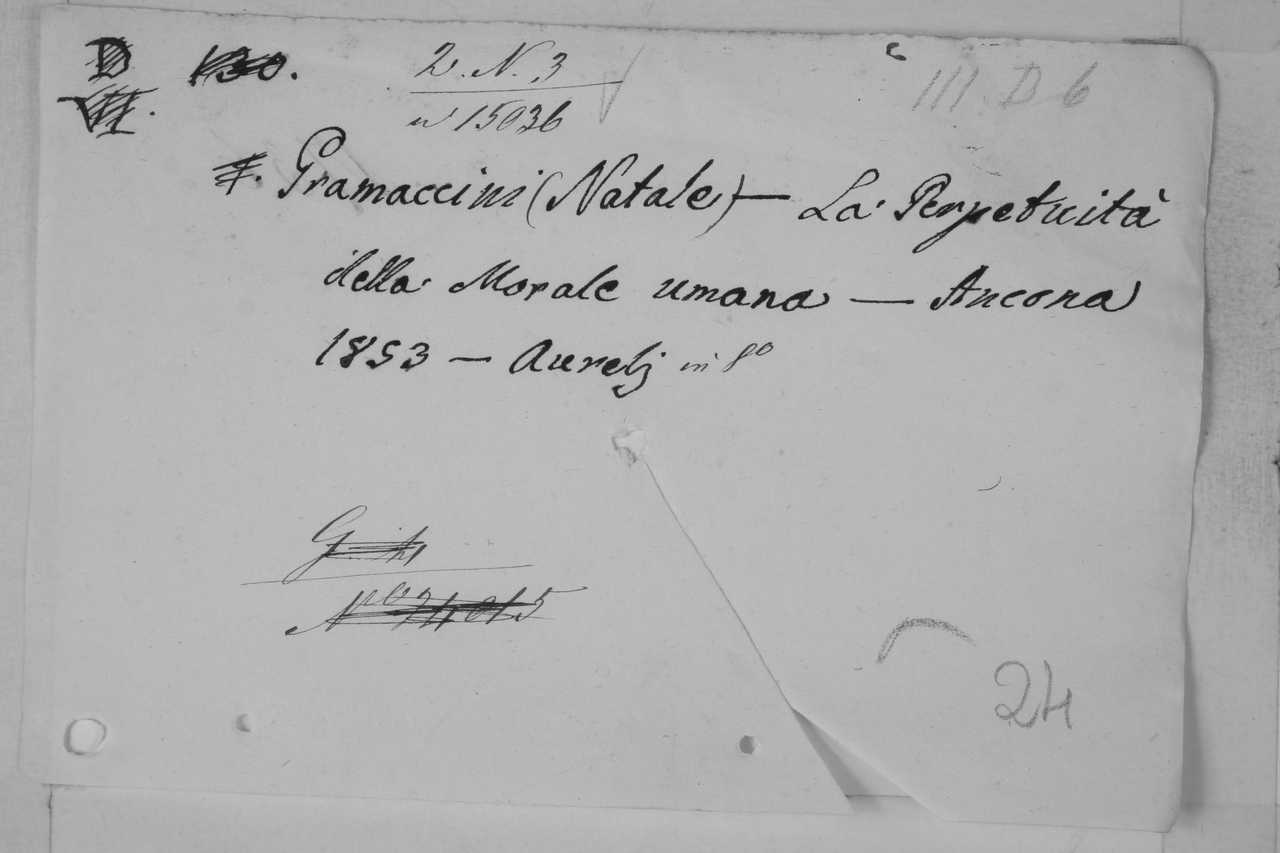 D 130.
VII.
2. N. 3
n° 15036
III D 6
Gramaccini (Natale) — La Perpetuità
della Morale umana — Ancona
1853 — Aurelj in 8°
24